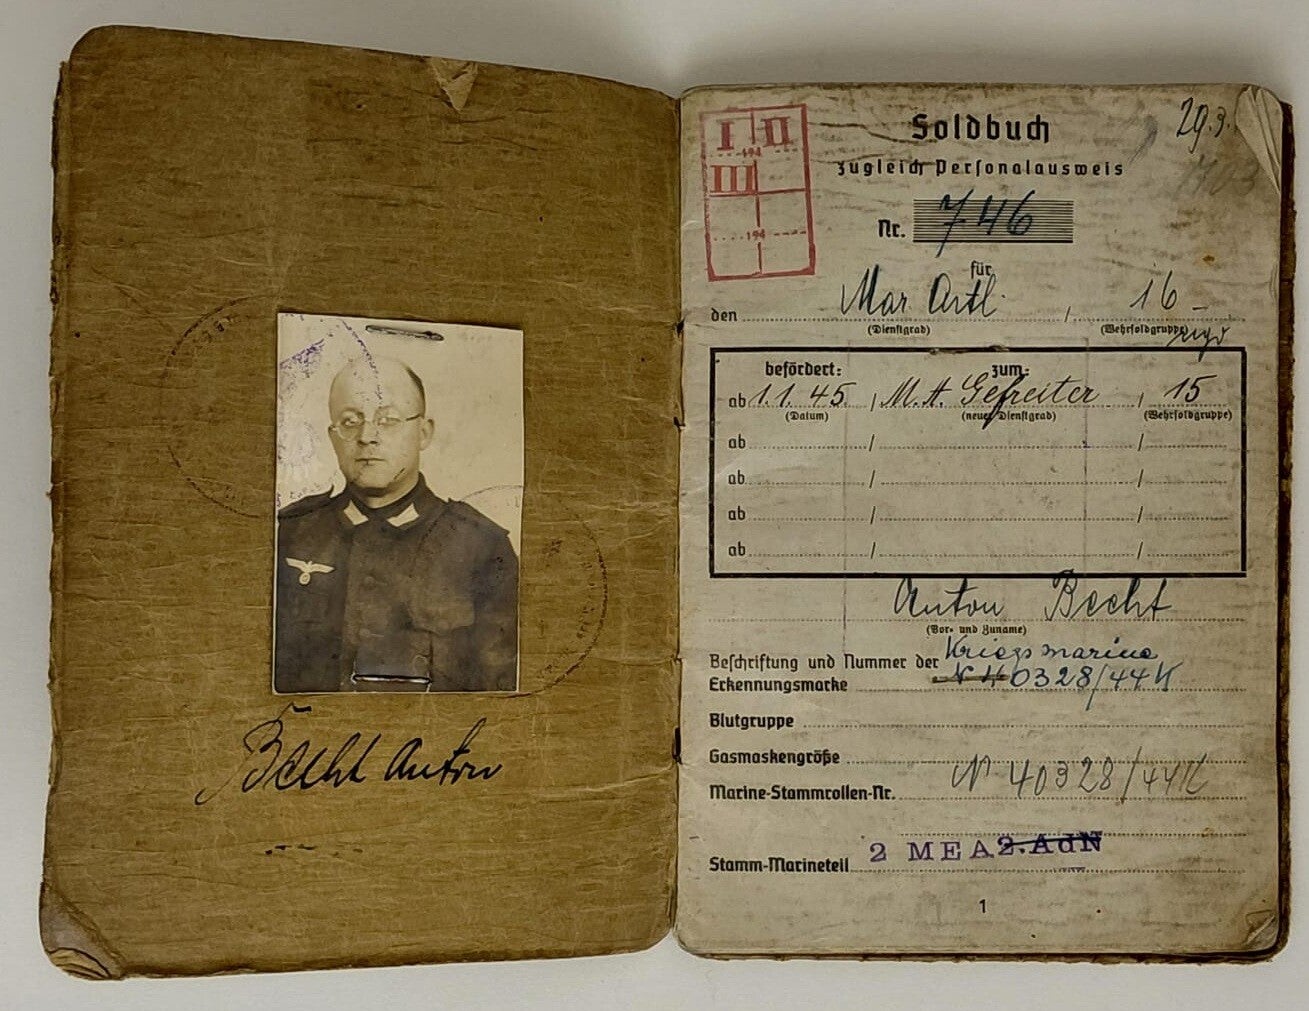 Becht Anton
I II
194
III
194
29.3.
Soldbuch
zugleich Personalausweis
Nr. 746
für
den Mar Artl. , 16
(Dienstgrad) (Wehrsoldgruppe)
befördert: zum:
ab 1.1.45 / M.A. Gefreiter , 15
(Datum) (neuer Dienstgrad) (Wehrsoldgruppe)
ab / /
ab / /
ab / /
ab / /
Anton Becht
(Vor- und Zuname)
Beschriftung und Nummer der Kriegsmarine
Erkennungsmarke N 40328/44 K
Blutgruppe
Gasmaskengröße
Marine-Stammrollen-Nr. N 40328/44K
Stamm-Marineteil 2 MEA 2.AdN
1